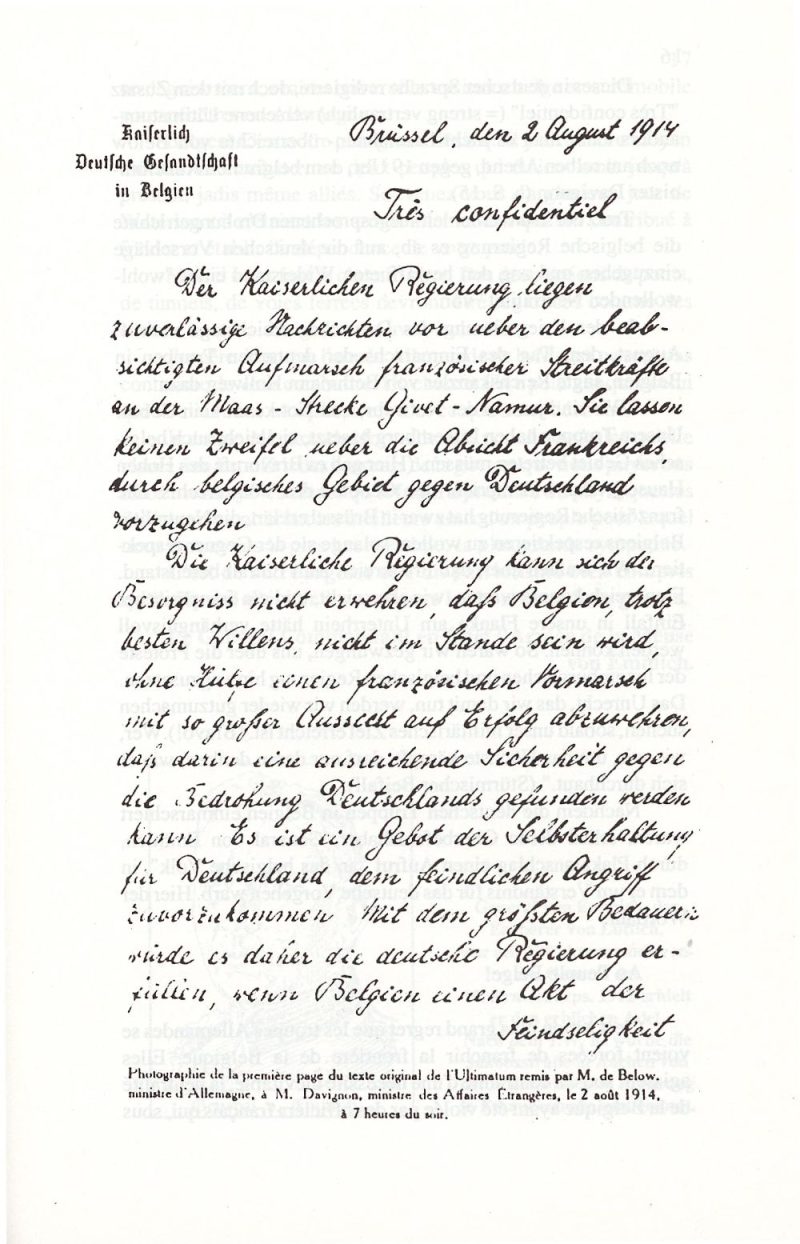 Kaiserlich
Deutsche Gesandtschaft
in Belgien
Brüssel, den 2 August 1914
Très confidentiel
Der Kaiserlichen Regierung liegen
zuverlässige Nachrichten vor ueber den beab-
sichtigten Aufmarsch französischer Streitkräfte
an der Maas-Strecke Givet-Namur. Sie lassen
keinen Zweifel ueber die Absicht Frankreichs,
durch belgisches Gebiet gegen Deutschland
vorzugehen
Die Kaiserliche Regierung kann sich der
Besorgniss nicht erwehren daß Belgien, trotz
besten Willens, nicht im Stande sein wird,
ohne Hülfe einen französischen Vormarsch
mit so großer Aussicht auf Erfolg abzuwehren,
daß darin eine ausreichende Sicherheit gegen
die Bedrohung Deutschlands gefunden werden
kann Es ist ein Gebot der Selbsterhaltung
für Deutschland, dem feindlichen Angriff
zuvorzukommen Mit dem größten Bedauern
würde es daher die deutsche Regierung er-
füllen, wenn Belgien einen Akt der
Feindseligkeit
Photographie de la première page du texte original de l'Ultimatum remis par M. de Below,
ministre d'Allemagne, à M. Davignon, ministre des Affaires Étrangères, le 2 août 1914,
à 7 heures du soir.